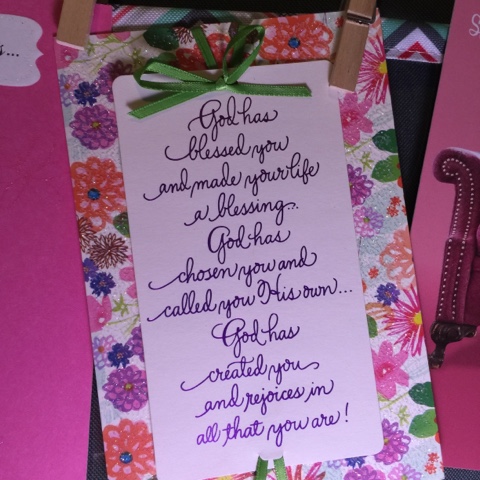 God has
blessed you
and made your life
a blessing...
God has
chosen you and
called you His own...
God has
created you
and rejoices in
all that you are!